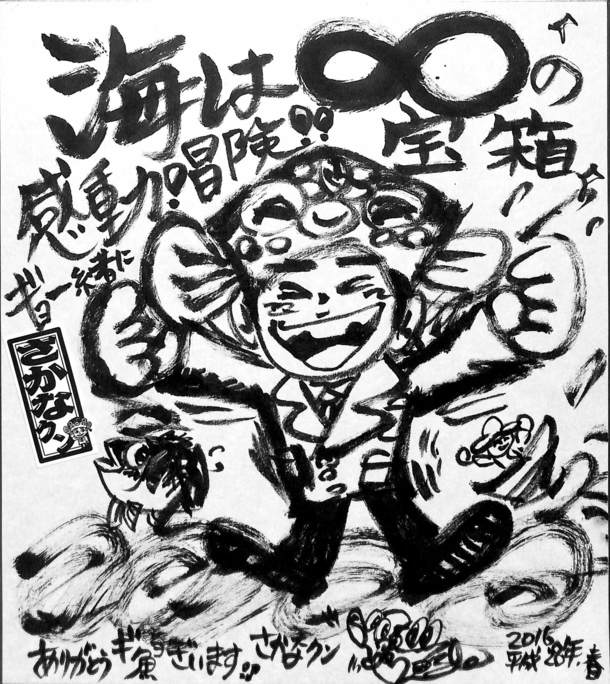 海は∞の
宝箱
感動!冒険!!
ギョ一緒に
さかなクン
ありがとうギョざいます!!
さかなクン
2016
平成28年、春